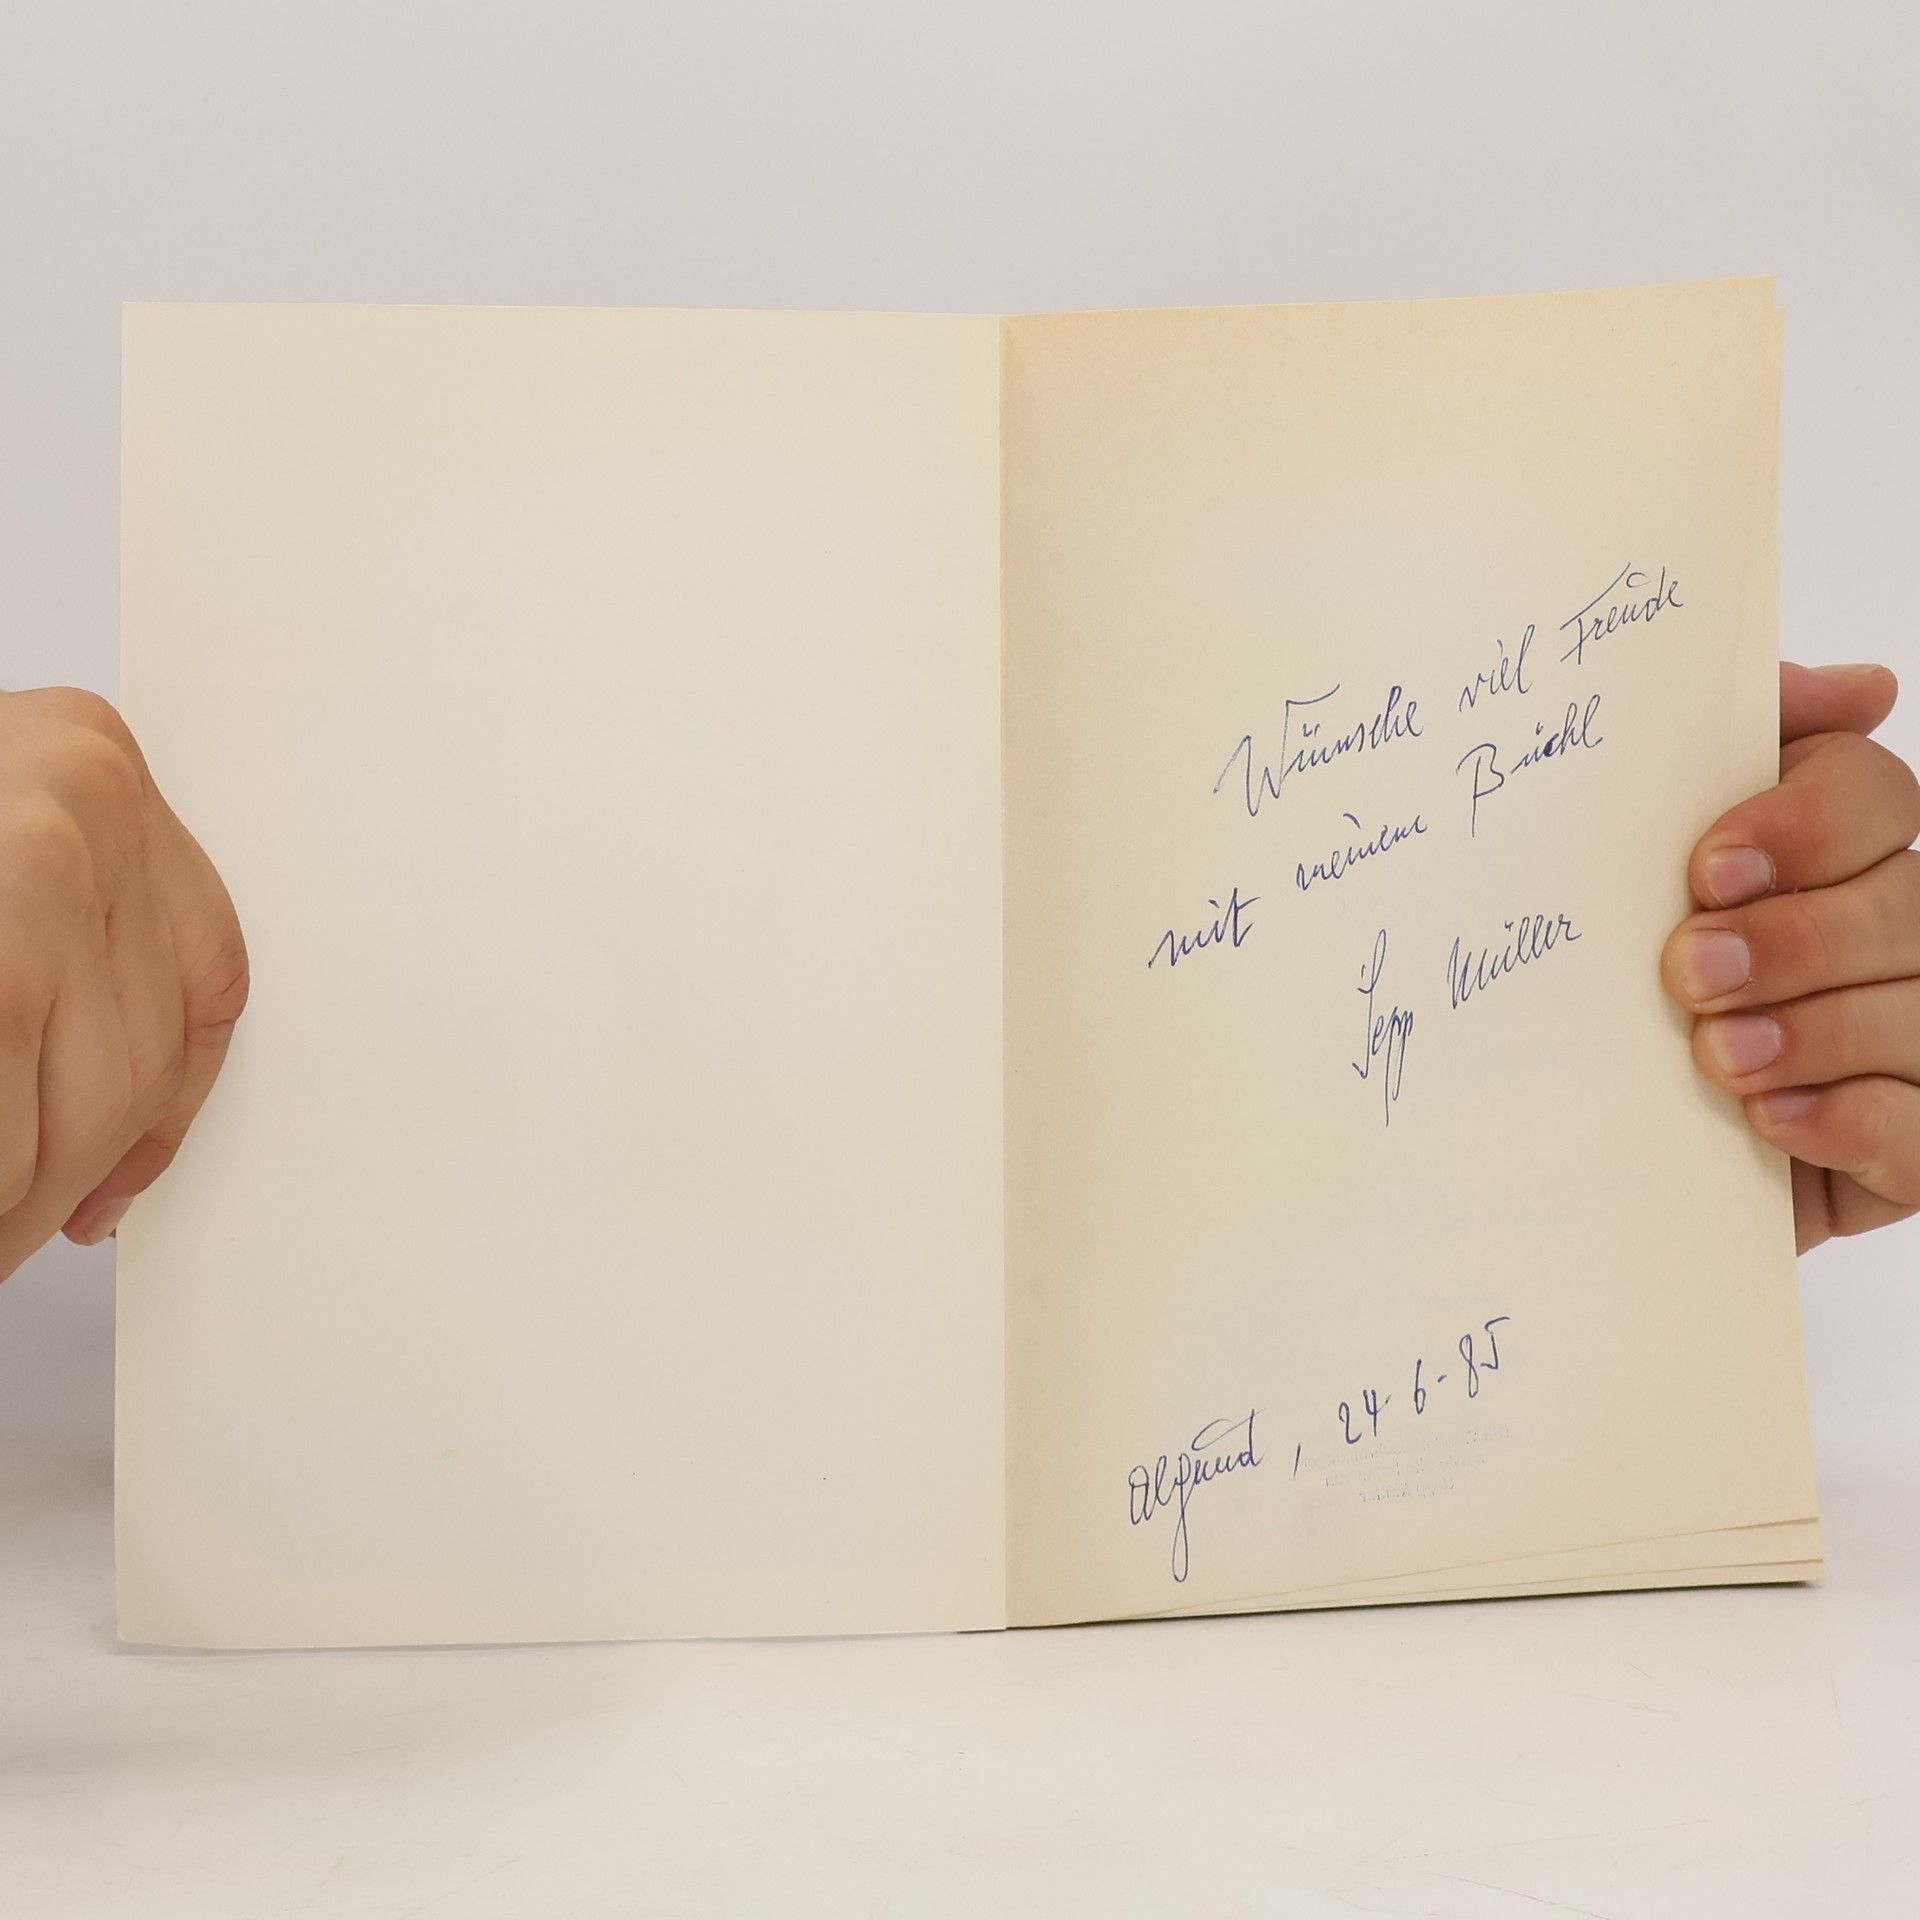 Wünsche viel Freude
mit meinem Büchl
Sepp Müller
Algund, 24-6-85